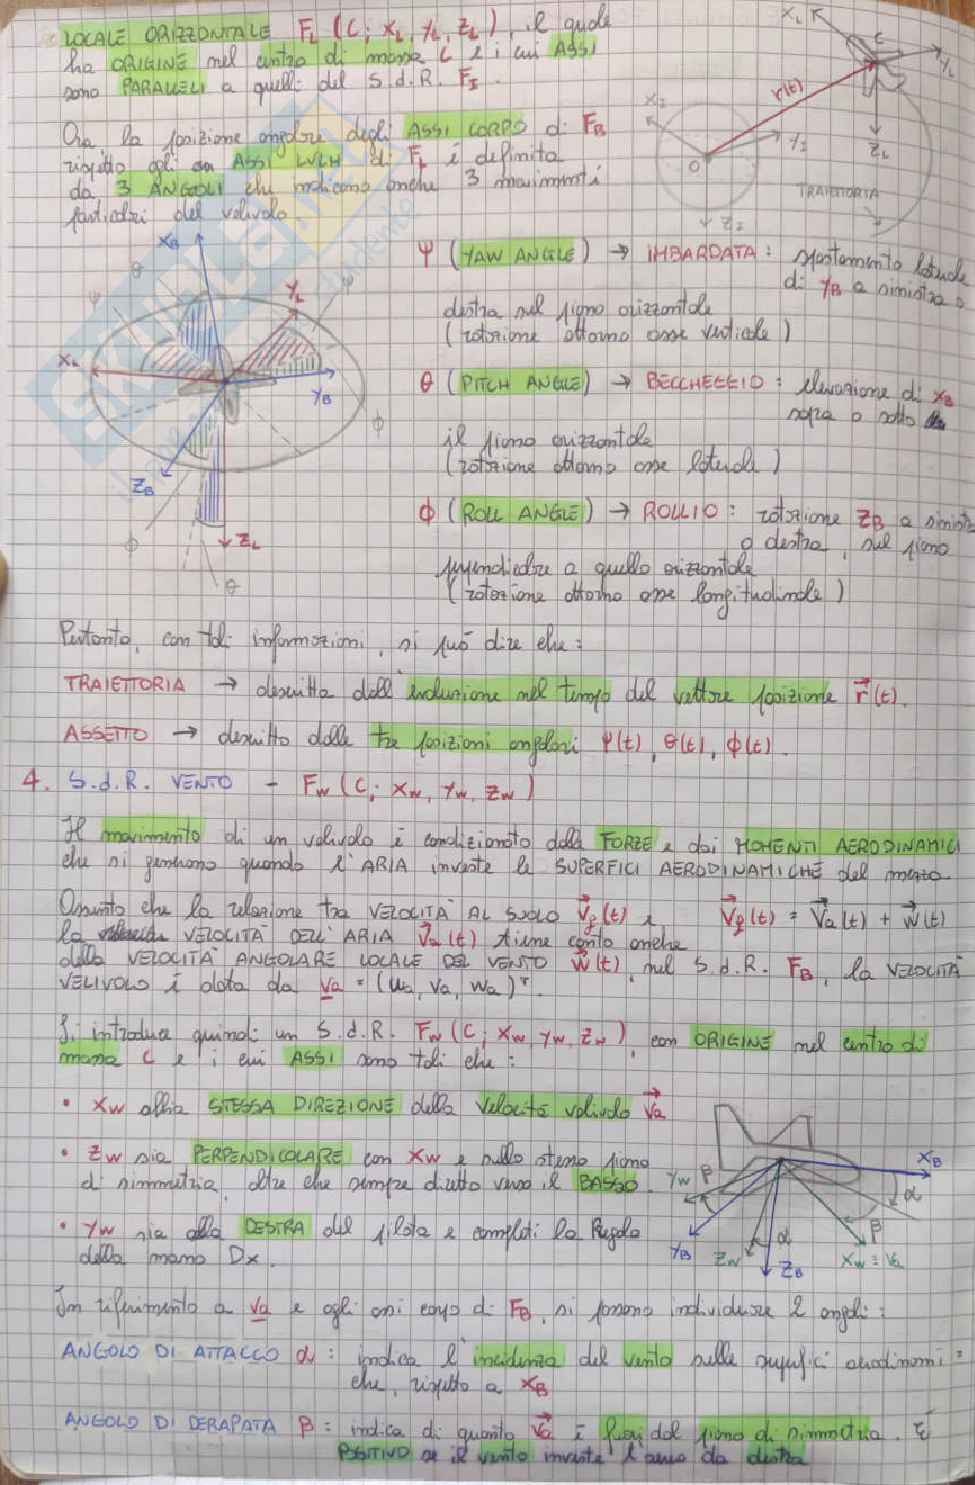 LOCALE ORIZZONTALE F_L (C; X_L, Y_L, Z_L), il quale
ha ORIGINE nel centro di massa C e i cui ASSI
sono PARALLELI a quelli del S.d.R. F_I.
Ora, la posizione angolare degli ASSI CORPO di F_B
rispetto agli ASSI LVLH di F_L è definita
da 3 ANGOLI che indicano anche 3 movimenti
particolari del velivolo.
X_L
C
Y_L
r(t)
X_I
Y_I
Z_L
O
TRAIETTORIA
Z_I
X_B
θ
ψ
Y_L
ψ
X_L
Y_B
ϕ
Z_B
ϕ
Z_L
θ
ψ (YAW ANGLE) → IMBARDATA: spostamento laterale
di Y_B a sinistra o
destra nel piano orizzontale
(rotazione attorno asse verticale)
θ (PITCH ANGLE) → BECCHEGGIO: elevazione di X_B
sopra o sotto
il piano orizzontale
(rotazione attorno asse laterale)
ϕ (ROLL ANGLE) → ROLLIO: rotazione Z_B a sinistra
o destra, sul piano
perpendicolare a quello orizzontale
(rotazione attorno asse longitudinale)
Pertanto, con tali informazioni, si può dire che:
TRAIETTORIA → descritta dall'evoluzione nel tempo del vettore posizione r⃗(t).
ASSETTO → descritto dalle tre posizioni angolari ψ(t), θ(t), ϕ(t).
4. S.d.R. VENTO - F_W (C; X_W, Y_W, Z_W)
Il movimento di un velivolo è condizionato dalle FORZE e dai MOMENTI AERODINAMICI
che si generano quando l'ARIA investe le SUPERFICI AERODINAMICHE del mezzo.
Assunto che la relazione tra VELOCITÀ AL SUOLO V⃗_g(t) e V⃗_g(t) = V⃗_a(t) + w⃗(t)
la VELOCITÀ DELL'ARIA V⃗_a(t) tiene conto anche
della VELOCITÀ ANGOLARE LOCALE DEL VENTO w⃗(t), nel S.d.R. F_B, la VELOCITÀ
VELIVOLO è data da V_a = (u_a, v_a, w_a)ᵀ.
Si introduce quindi un S.d.R. F_W (C; X_W, Y_W, Z_W), con ORIGINE nel centro di
massa C e i cui ASSI sono tali che:
• X_W abbia STESSA DIREZIONE della velocità velivolo V⃗_a
• Z_W sia PERPENDICOLARE con X_W e sullo stesso piano
di simmetria, oltre che sempre diretto verso il BASSO.
• Y_W sia alla DESTRA del pilota e completi la Regola
della mano Dx.
X_B
Y_W
β
α
β
Y_B
Z_W
α
Z_B
X_W ≡ V_a
In riferimento a V_a e agli assi corpo di F_B, si possono individuare 2 angoli:
ANGOLO DI ATTACCO α: indica l'incidenza del vento sulle superfici aerodinami=
che, rispetto a X_B
ANGOLO DI DERAPATA β: indica di quanto V⃗_a è fuori dal piano di simmetria. È
POSITIVO se il vento investe l'aereo da destra